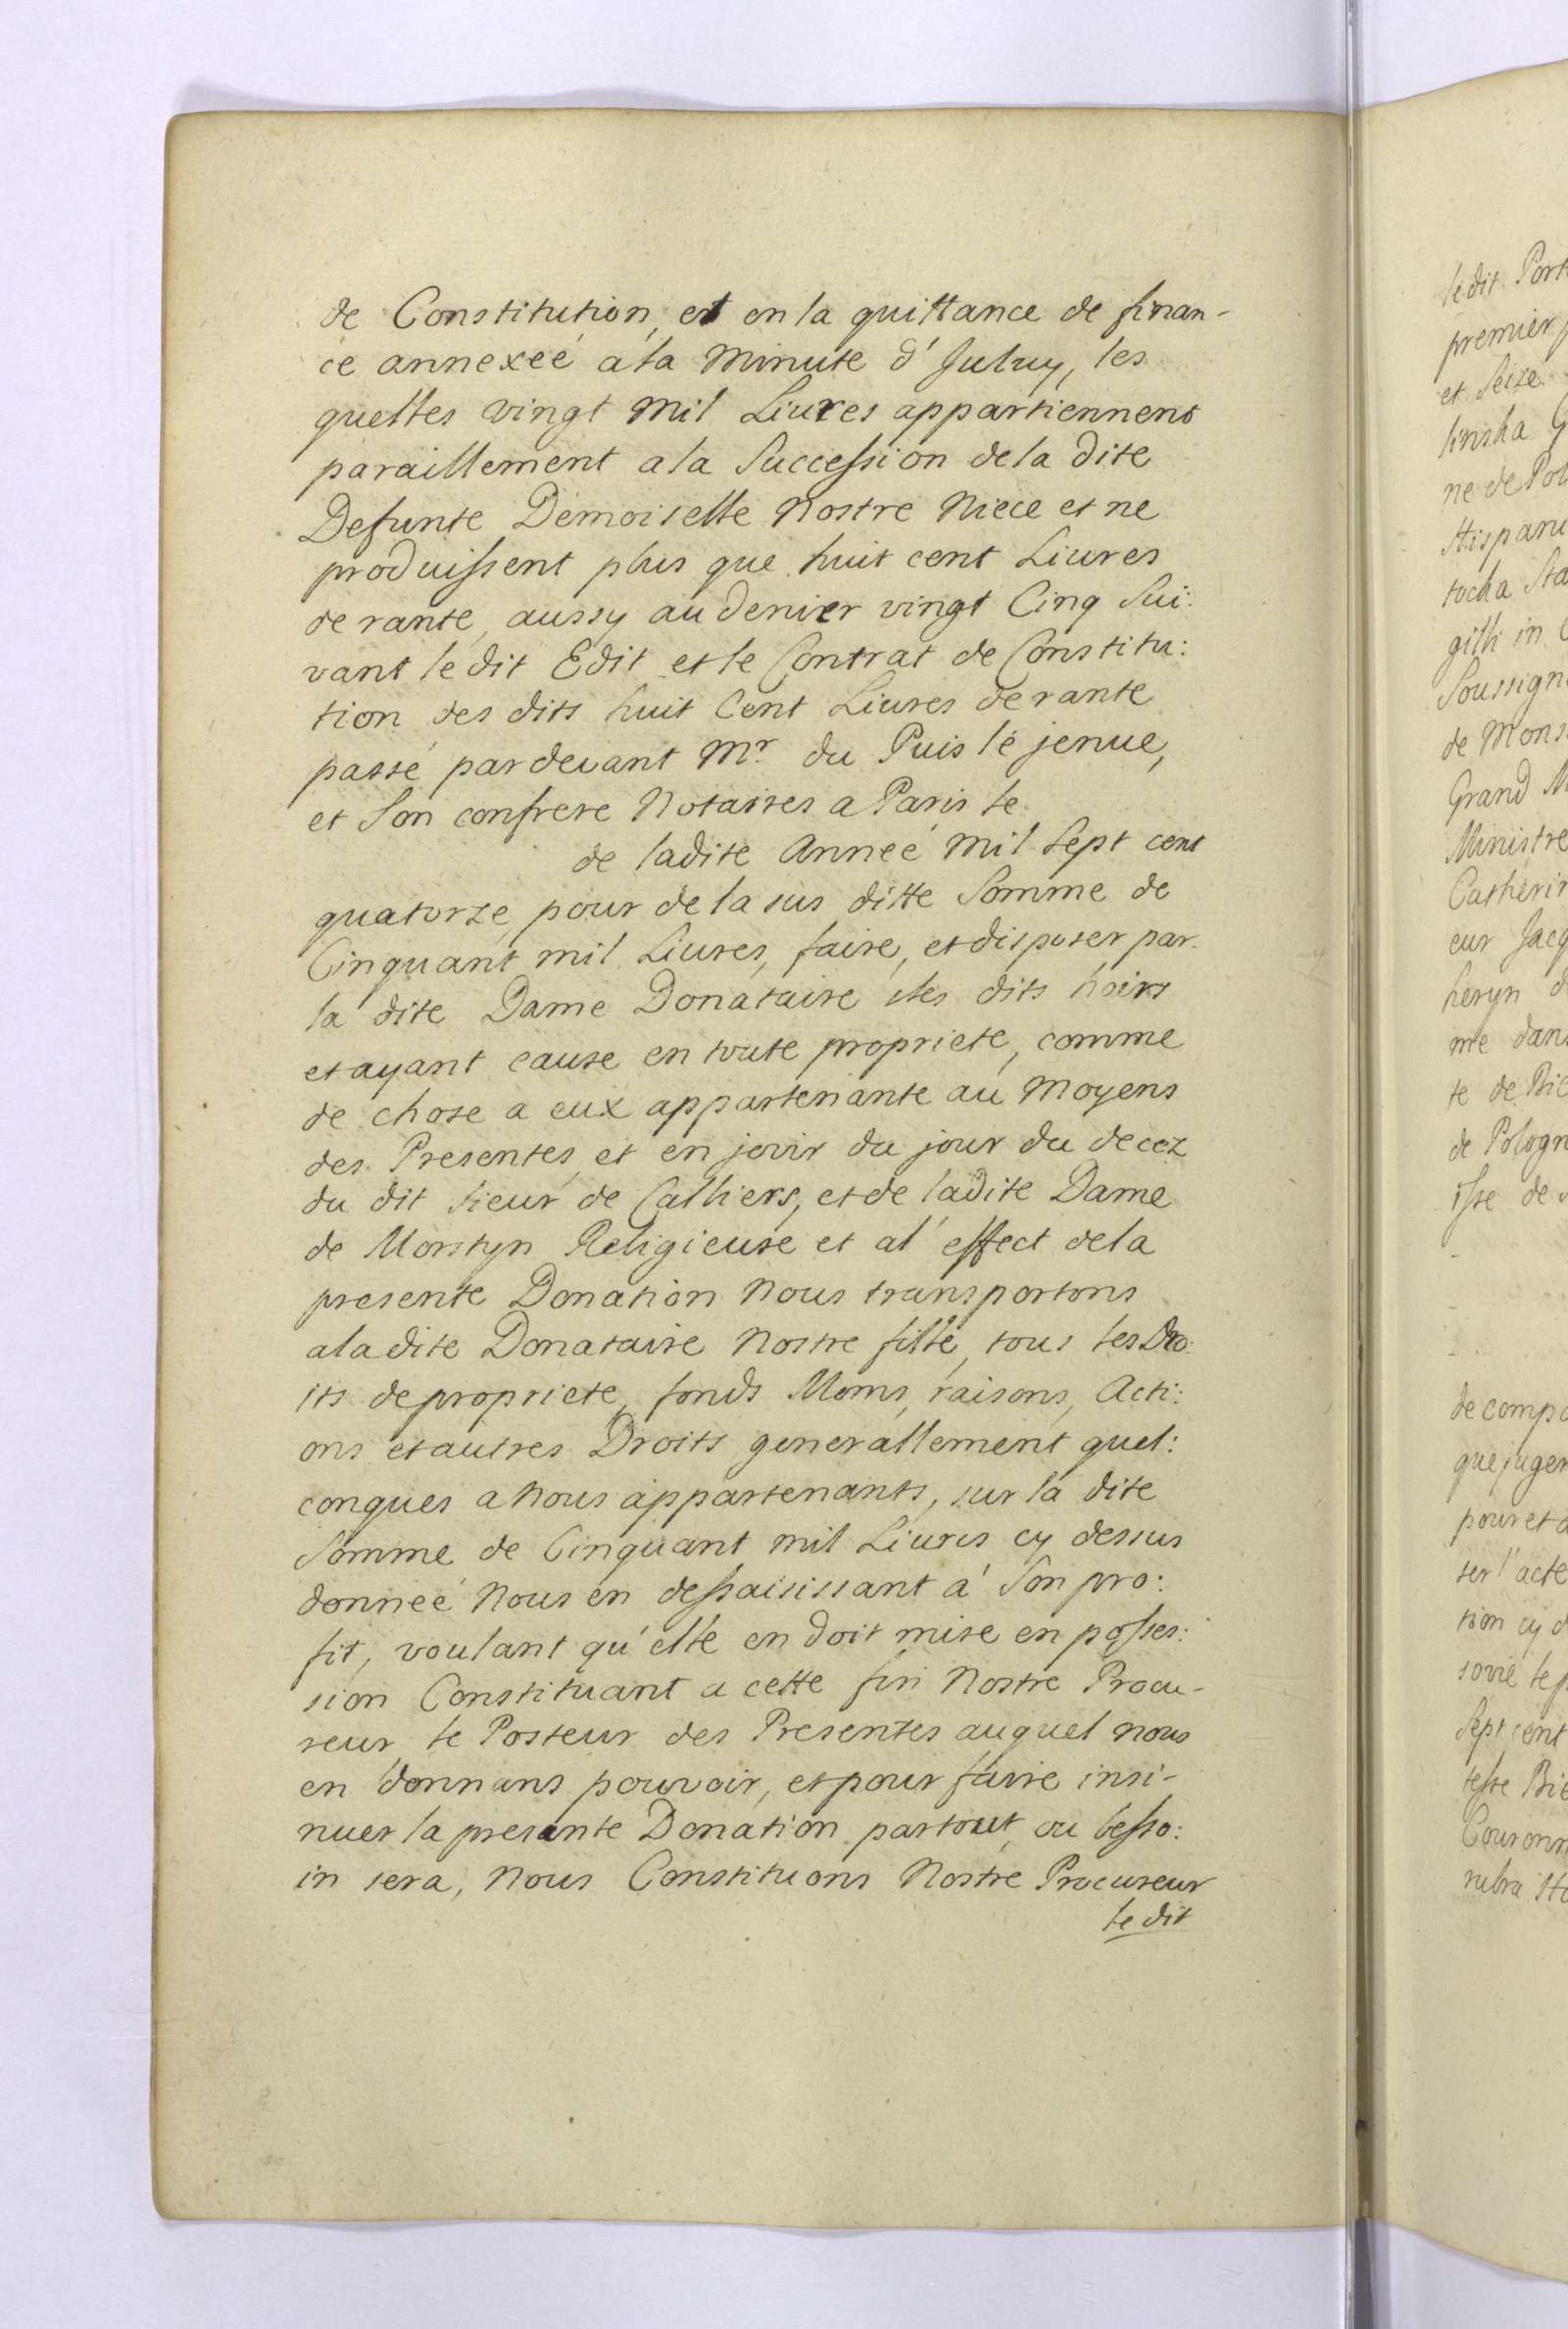 de Constitution, et en la quittance de finan-
ce annexeé a la Minute d' Juluy, les
quelles vingt mil Liures appartiennent
paraillement a la Succession de la dite
Defunte Demoiselle Nostre Niece et ne
produissent plus que huit cent Liures
de rante, aussy au denier vingt Cinq Sui:
vant le dit Edit et le Contrat de Constitu:
tion des dits huit Cent Liures de rante
passé pardeuant Mr. du Puis le jenue,
et Son confrere Notaires a Paris le
de ladite Anneé Mil Sept cent
quatorze, pour de la sus ditte Somme de
Cinquant mil Liures, faire, et disposer par
la dite Dame Donataire ses dits hoirs
et ayant cause en toute propriete, comme
de chose a eux appartenante au Moyens
des Presentes, et en jovir du jour du decez
du dit Sieur de Calliers, et de ladite Dame
de Morstyn Religieuse et al' effect de la
presente Donation Nous transportons
a ladite Donataire Nostre fille, tous les Dro:
its de propriete, fonds Moms, raisons, Acti:
ons et autres Droits generallement quel:
conques a Nous appartenants, sur la dite
Somme de Cinquant mil Liures cy dessus
donneé Nous en dessaisissant a' Son pro:
fit, voulant qu' elle en doit mise en posses:
sion Constituant a cette fin Nostre Procu-
reur, le Posteur des Presentes auquel nous
en donnans pouvoir, et pour faire insi-
nuer la presante Donation partout ou besso:
in sera, Nous Constituons Nostre Procureur
le dit
le dit Port
premier
et Seize
linska G
ne de Pol
Hispani
tocha Sta
gilli in
Soussign
de Mons
Grand M
Ministre
Catherin
eur Jacq
heryn d
me dans
te de Bie
de Pologn
isse de
de compa
que juger
pour et a
ser l' acte
tion cy d
sovie le p
Sept cent
tesse Bie
Couronn
rubra